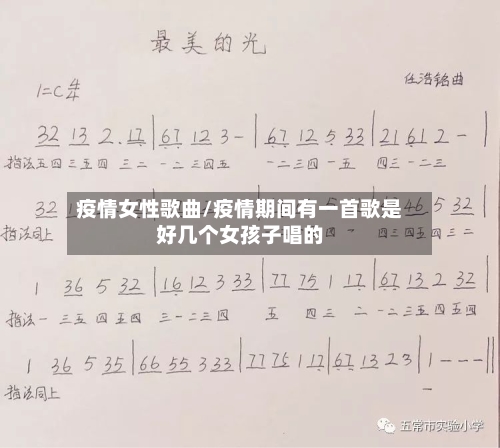 最美的光
1=C 4/4
任浩铭曲
32 13 2. 17 | 67 12 3 - | 67 12 5 33 | 21 61 2 - |
指法五四 三五四 三二 一二 三四五 一二三四 一五 四三一二三
疫情女性歌曲/疫情期间有一首歌是
好几个女孩子唱的
32 46 5 32 |
指法同上 四三四五三二
1 36 5 32 | 16 12 3 33 | 77 75 1 17 | 67 13 2 32 |
指法一 三五四五四 三一二三四 五 四三 二 一二三五四五四
1 36 5 35 | 66 55 3 33 | 77 75 1 17 | 67 13 2 3 | 1 - - - ||
指法同上 一
五常市实验小学